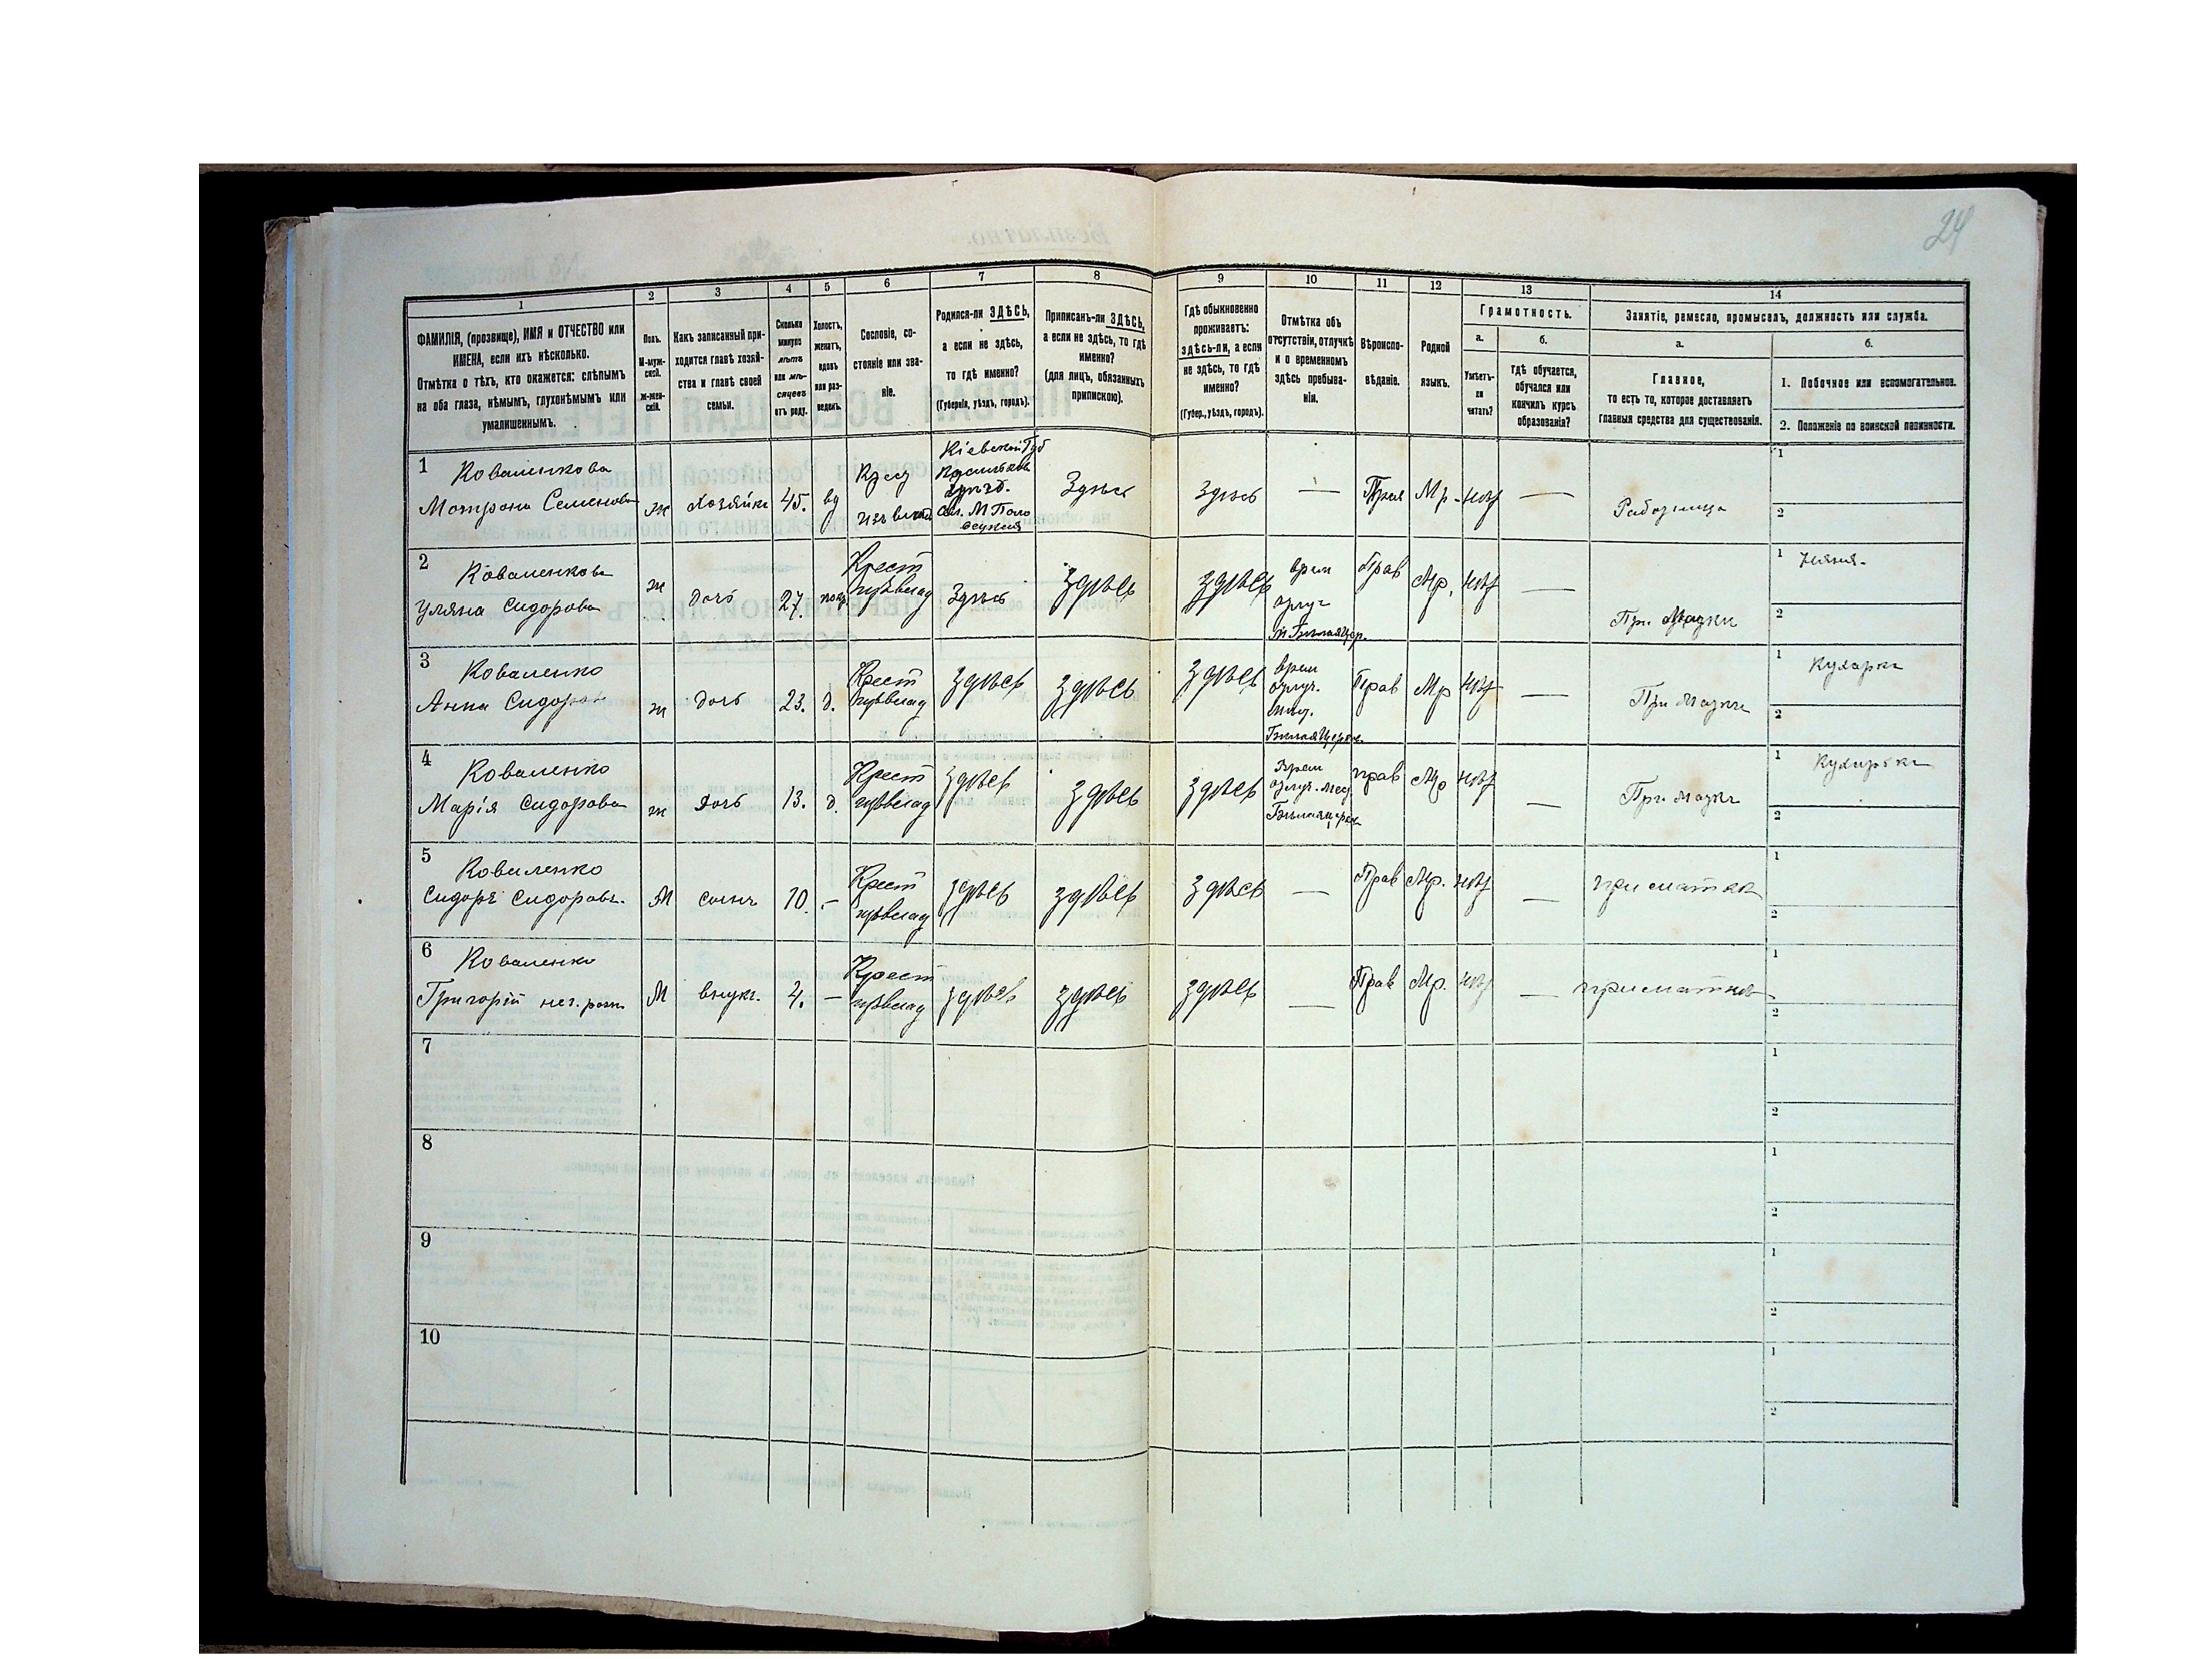 24
1
2
3
4
5
6
7
8
9
10
11
12
13
14
ФАМИЛІЯ, (прозвище), ИМЯ и ОТЧЕСТВО или
ИМЕНА, если ихъ нѣсколько.
Отмѣтка о тѣхъ, кто окажется: слѣпымъ
на оба глаза, нѣмымъ, глухонѣмымъ или
умалишеннымъ.
Полъ.
М-муж-
ской.
ж-жен-
скій.
Какъ записанный при-
ходится главѣ хозяй-
ства и главѣ своей
семьи.
Сколько
минуло
лѣтъ
или мѣ-
сяцевъ
отъ роду.
Холостъ,
женатъ,
вдовъ
или раз-
веденъ.
Сословіе, со-
стояніе или зва-
ніе.
Родился-ли ЗДѢСЬ,
а если не здѣсь,
то гдѣ именно?
(Губернія, уѣздъ, городъ).
Приписанъ-ли ЗДѢСЬ,
а если не здѣсь, то гдѣ
именно?
(для лицъ, обязанныхъ
припискою).
Гдѣ обыкновенно
проживаетъ:
здѣсь-ли, а если
не здѣсь, то гдѣ
именно?
(Губер., уѣздъ, городъ).
Отмѣтка объ
отсутствіи, отлучкѣ
и о временномъ
здѣсь пребыва-
ніи.
Вѣроиспо-
вѣданіе.
Родной
языкъ.
Грамотность.
а.
Умѣетъ-
ли
читать?
б.
Гдѣ обучается,
обучался или
кончилъ курсъ
образованія?
Занятіе, ремесло, промыселъ, должность или служба.
а.
Главное,
то есть то, которое доставляетъ
главныя средства для существованія.
б.
1. Побочное или вспомогательное.
2. Положеніе по воинской повинности.
1
Коваленкова
Мотрона Семенова
ж
Хозяйка
45.
вд
Крест
изъ влад
Кіевской Губ
Здѣсь
Здѣсь
—
Мр.
нѣт
—
Работница
1
2
2
Коваленкова
Уляна Сидорова
ж
дочь
27.
Крест
изъ влад
Здѣсь
здѣсь
здѣсь
врем
отлуч
м Бѣлая Цер.
Прав
Мр.
нѣт
—
При матки
1 Няня.
2
3
Коваленко
Анна Сидорова
ж
дочь
23.
д.
Крест
изъ влад
здѣсь
здѣсь
здѣсь
врем
отлуч.
мест.
Бѣлая Церков.
Прав
Мр
нѣт
—
При матки
1 Кухарка
2
4
Коваленко
Марія Сидорова
ж
дочь
13.
д.
Крест
изъ влад
здѣсь
здѣсь
здѣсь
Врем
отлуч. мест
Бѣлая церков
прав
Мр
нѣт
—
При матки
1 Кухарка
2
5
Коваленко
Сидоръ Сидоровъ.
М
сынъ
10.
—
Крест
изъ влад
здѣсь
здѣсь
здѣсь
—
Прав
Мр.
нѣт
—
при матки
1
2
6
Коваленко
Григорій
М
внукъ.
4.
—
Крест
изъ влад
здѣсь
здѣсь
здѣсь
—
Прав
Мр.
нѣт
—
1
2
7
1
2
8
1
2
9
1
2
10
1
2